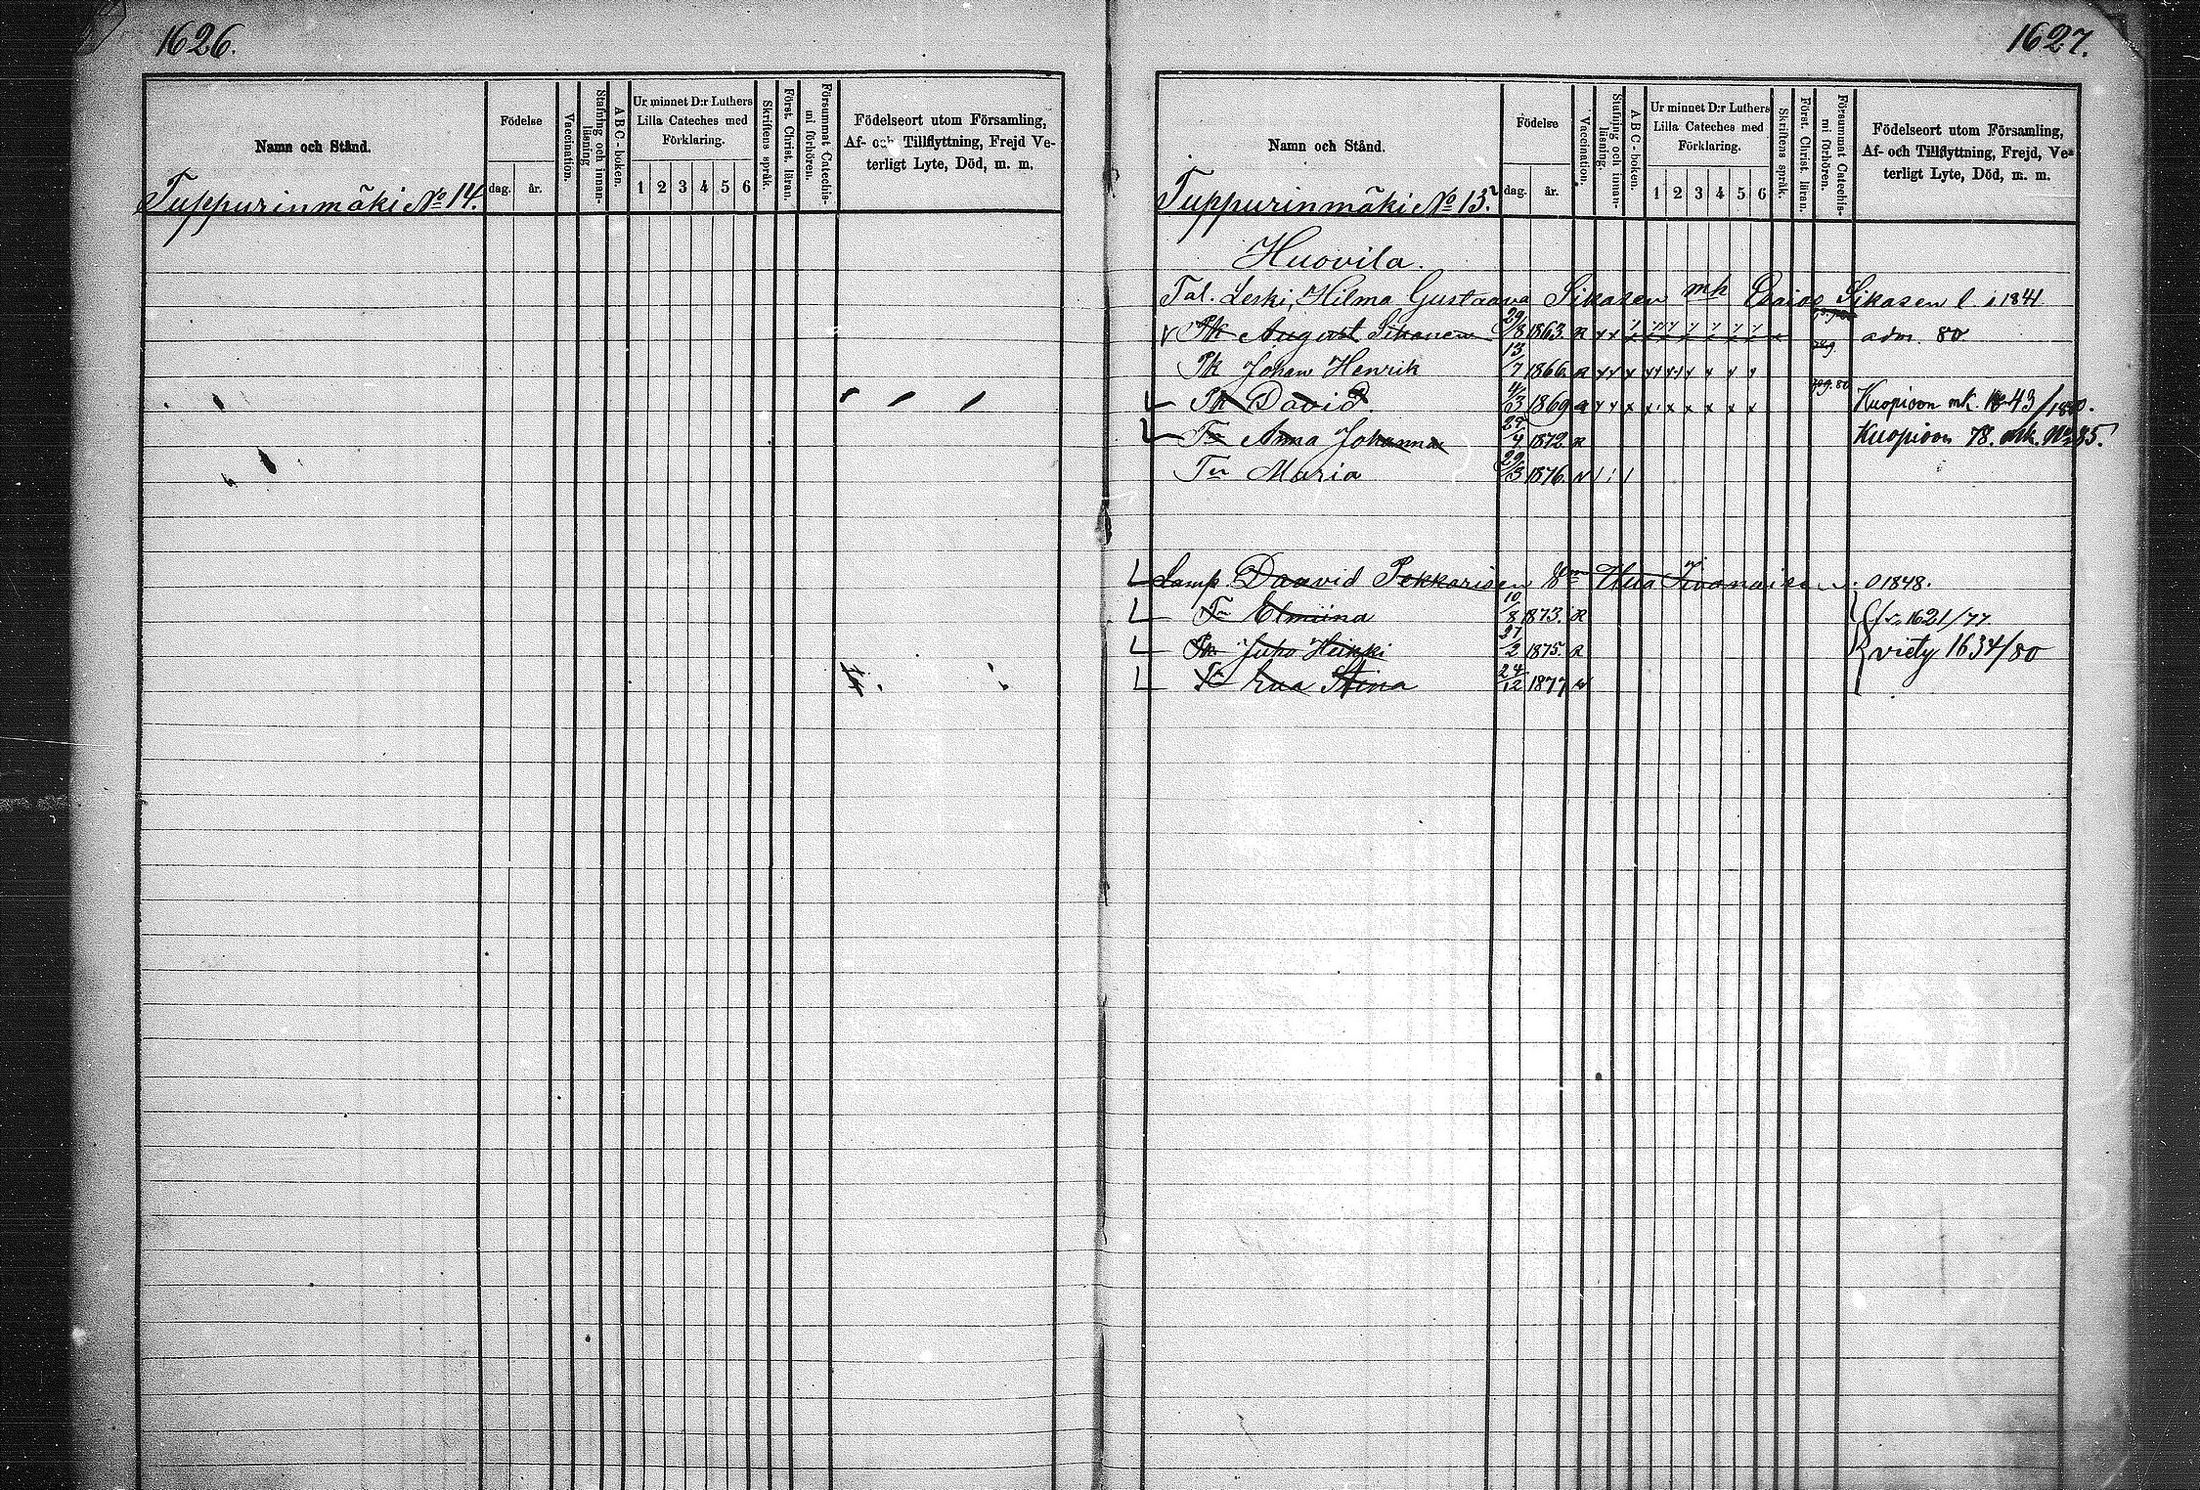 1626.
Namn och Stånd.
Födelse
dag.
år.
Vaccination.
Stafning och innan-
läsning
A B C - boken.
Ur minnet D:r Luthers
Lilla Cateches med
Förklaring.
1 2 3 4 5 6
Skriftens språk.
Först. Christ. läran.
Försummat Catechis-
mi förhören.
Födelseort utom Församling,
Af- och Tillflyttning, Frejd Ve-
terligt Lyte, Död, m. m.
Tuppurinmäki No 14.
1627.
Namn och Stånd.
Födelse
dag.
år.
Vaccination.
Stafning och innan-
läsning.
A B C - boken.
Ur minnet D:r Luthers
Lilla Cateches med
Förklaring.
1 2 3 4 5 6
Skriftens språk.
Först. Christ. läran.
Försummat Catechis-
mi förhören.
Födelseort utom Församling,
Af- och Tillflyttning, Frejd, Ve-
terligt Lyte, Död, m. m.
Tuppurinmäki No 13.
Huovila.
Tal. Leski, Hilma Gustaava Sikasen mk Esaias Sikasen l. s 1841
Pk August Sikanen 29/8 1863. R adm. 80
Pk Johan Henrik 13/7 1866 R
Pk David 4/3 1869 R Kuopion mk. 43/1880.
Tr Anna Johanna 27/4 1872 R Kuopion 78. mk. No 85.
Tr Maria 29/3 1876. R
Lamp. Daavid Pekkarisen 1848.
Tr Elmiina 10/8 1873. R 1621/77
Pk Juho Heikki 27/2 1875. R viety 1634/80
Tr Eva Stina 24/12 1877 R